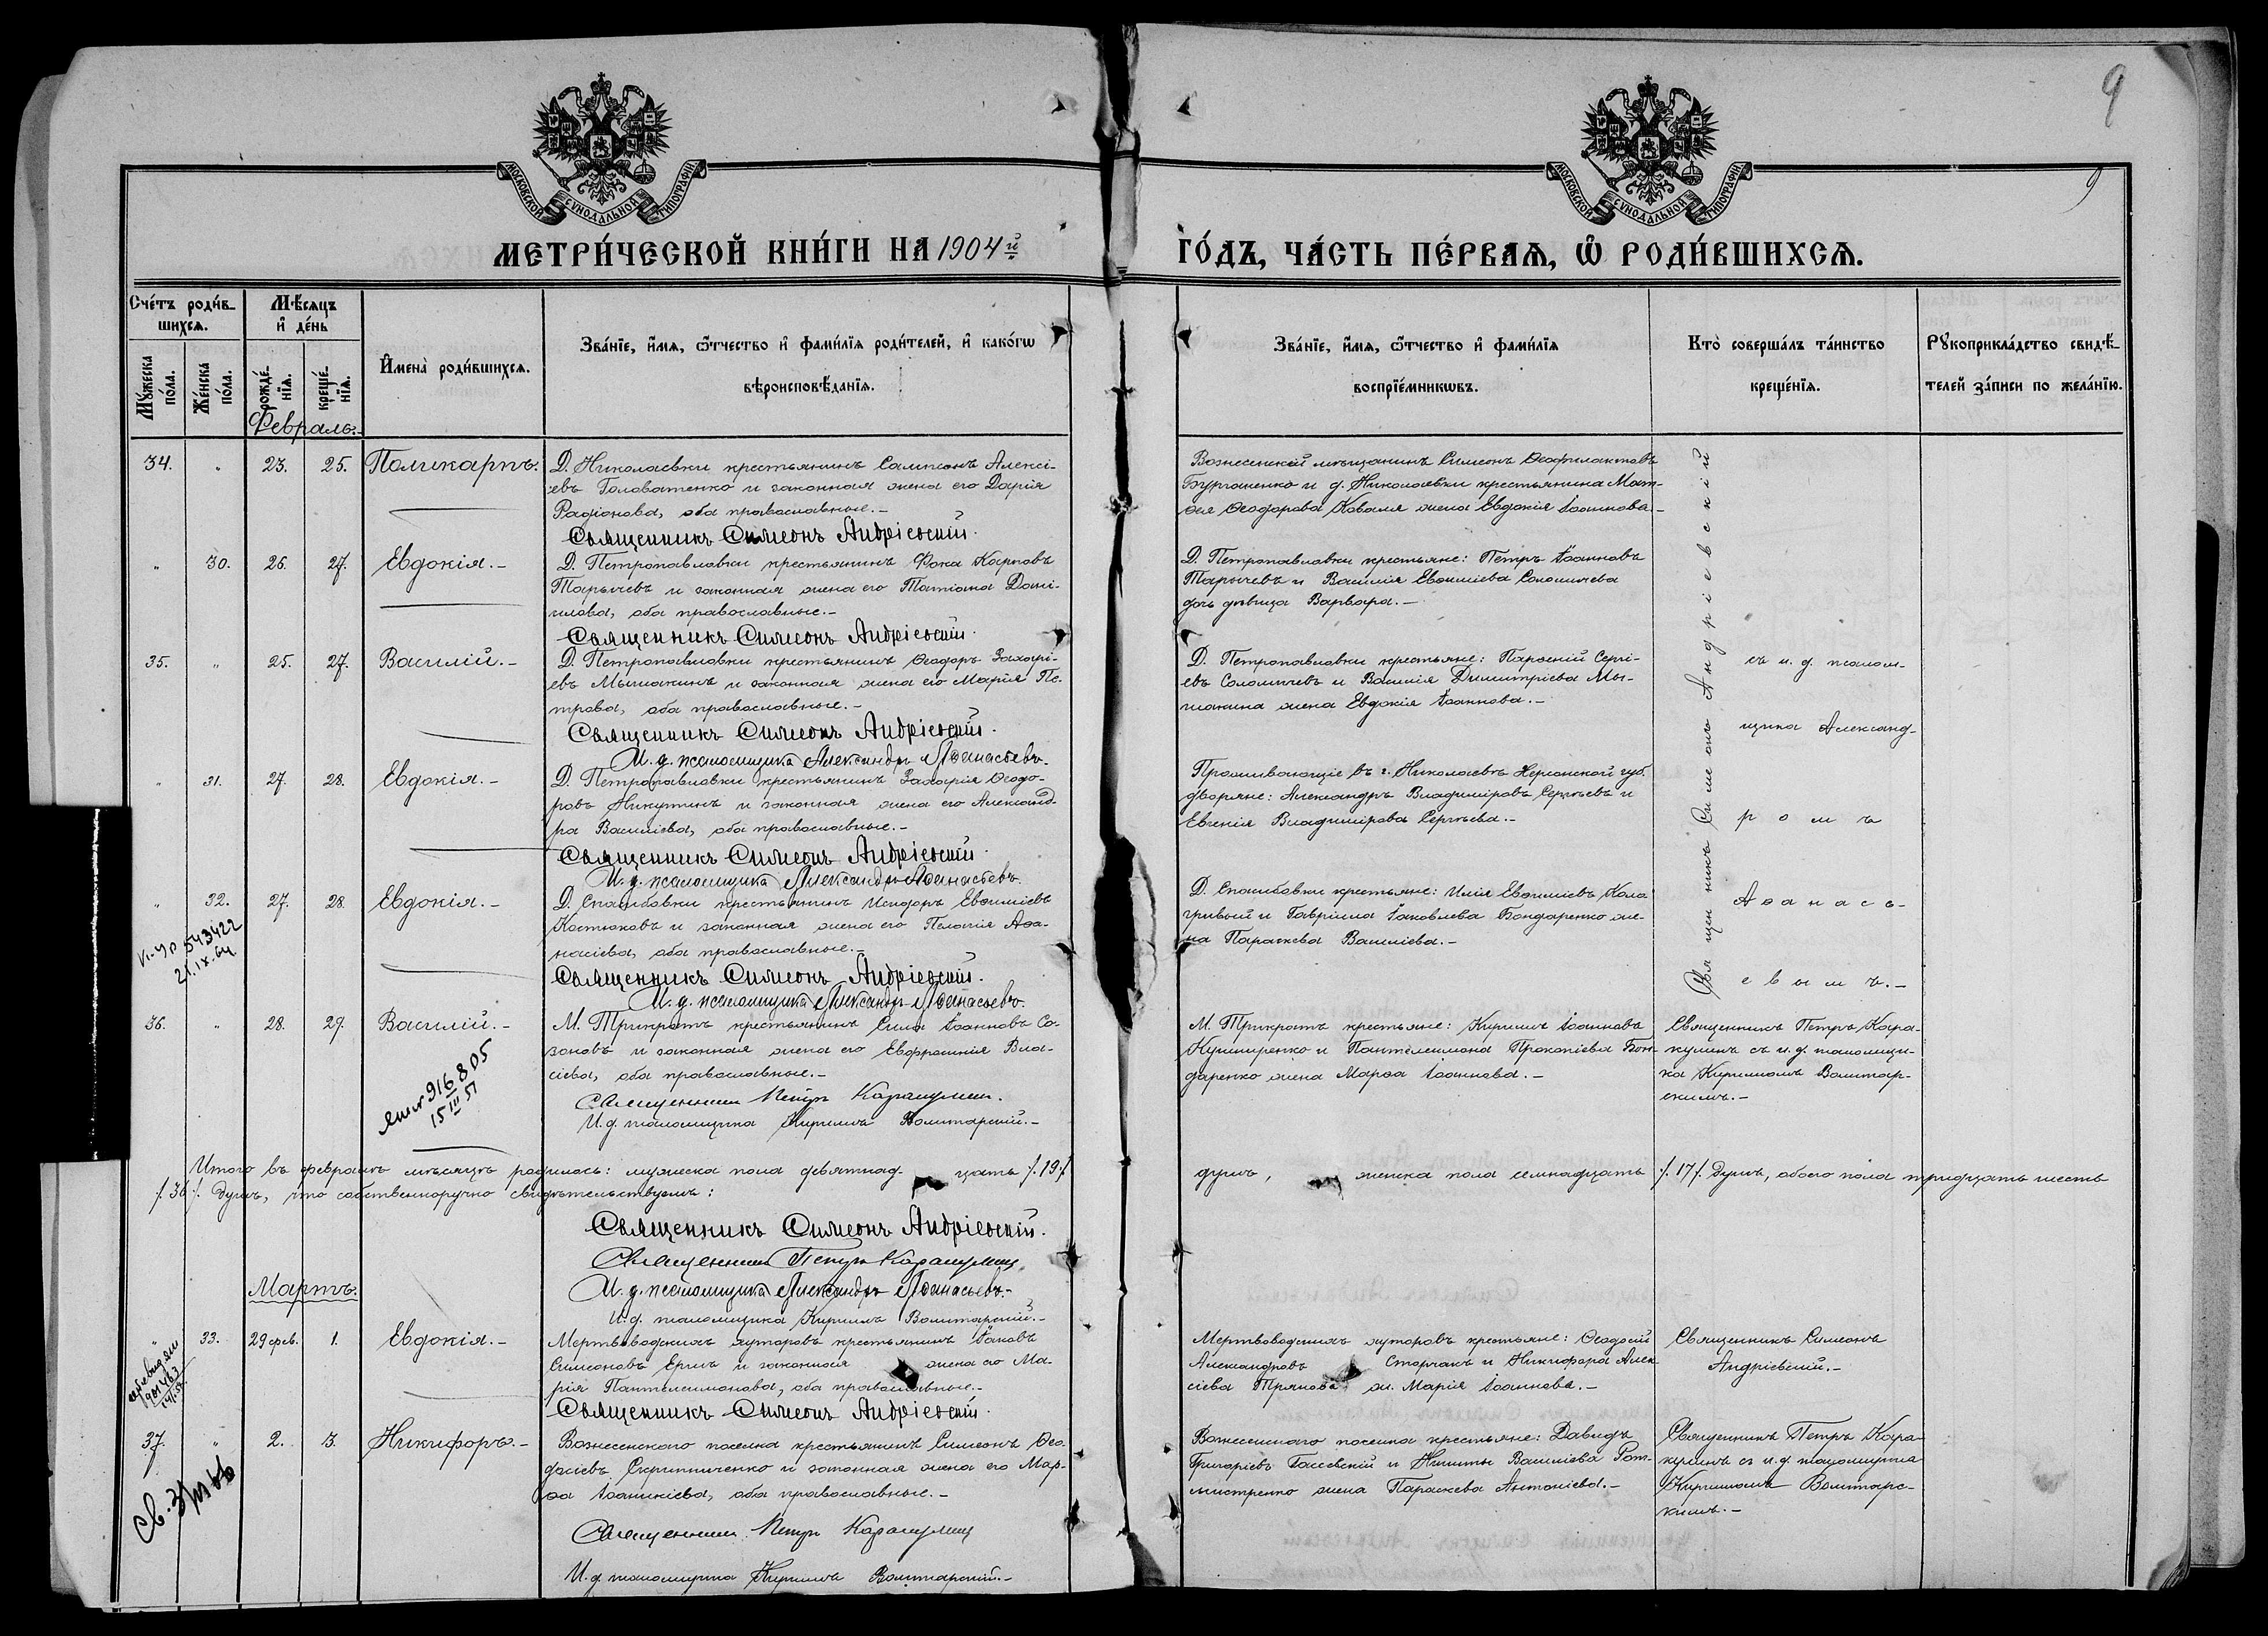 9
9
МОСКОВСКОЙ СѴНОДАЛЬНОЙ ТИПОГРАФІИ.
МОСКОВСКОЙ СѴНОДАЛЬНОЙ ТИПОГРАФІИ.
МЕТРИ́ЧЕСКОЙ КНИ́ГИ НА 1904й
ГО́ДЪ, ЧА́СТЬ ПЕ́РВАѦ, Ѡ҆ РОДИ́ВШИХСѦ.
Сче́тъ роди́в-
шихсѧ.
Мꙋ́жеска по́ла.
Же́нска по́ла.
Мѣ́сѧцъ
и҆ де́нь
рожде́-нїѧ.
креще́-нїѧ.
И҆мена̀ роди́вшихсѧ.
Зва́нїе, и҆́мѧ, ѻ҆́тчество и҆ фами́лїѧ роди́телей, и҆ како́гѡ
вѣроисповѣ́данїѧ.
Зва́нїе, и҆́мѧ, ѻ҆́тчество и҆ фами́лїѧ
воспрїе́мникѡвъ.
Кто̀ соверша́лъ та́инство
креще́нїѧ.
Рꙋкоприкла́дство свидѣ́-
телей за́писи по жела́нїю.
Февраль.-
34. " 23. 25. Поликарпъ.
Д. Николаевки крестьянинъ Сампсонъ Алексі-
евъ Головатенко и законная жена его Дарія
Радіонова, оба православные.-
Священникъ Симеонъ Андріевскій.
Вознесенскій мѣщанинъ Симеонъ Ѳеофилактовъ
Бурганенко и д. Николаевки крестьянина Мат-
ѳея Ѳеодорова Коваля жена Евдокія Іоаннова.-
" 30. 26. 27. Евдокія.-
Д. Петропавловки крестьянинъ Фока Карповъ
Тарычевъ и законная жена его Татіана Дані-
илова, оба православные.-
Священникъ Симеонъ Андріевскій.
Д. Петропавловки крестьяне: Петръ Іоанновъ
Тарычевъ и Василія Евѳиміева Соломичева
дочь дѣвица Варвара.-
35. " 25. 27. Василій.-
Д. Петропавловки крестьянинъ Ѳеодоръ Захарі-
евъ Мышакинъ и законная жена его Марія Пе-
трова, оба православные.-
Священникъ Симеонъ Андріевскій.
И. д. псаломщика Александръ Аѳанасьевъ.
Д. Петропавловки крестьяне: Парѳеній Сергі-
евъ Соломичевъ и Василія Димитріева Мы-
шакина жена Евдокія Іоаннова.-
Священникъ Симеонъ Андріевскій
съ и. д. псалом-
щика Александ-
ромъ
Аѳанась-
евымъ.-
" 31. 27. 28. Евдокія.-
Д. Петропавловки крестьянинъ Захарія Ѳеодо-
ровъ Никутинъ и законная жена его Александ-
ра Василіева, оба православные.-
Священникъ Симеонъ Андріевскій.
И. д. псаломщика Александръ Аѳанасьевъ.
Проживающіе въ г. Николаевѣ Херсонской губ.
дворяне: Александръ Владиміровъ Сергѣевъ и
Евгенія Владимірова Сергѣева.-
" 32. 27. 28. Евдокія.-
Д. Спасибовки крестьянинъ Исидоръ Евѳиміевъ
Костюковъ и законная жена его Пелагія Аѳа-
насіева, оба православные.-
Священникъ Симеонъ Андріевскій.
И. д. псаломщика Александръ Аѳанасьевъ.
Д. Спасибовки крестьяне: Илія Евѳиміевъ Коло-
гривый и Гавріила Іаковлева Бондаренко же-
на Параскева Василіева.-
543422
21.IX.64
36. " 28. 29. Василій.-
М. Трикратъ крестьянинъ Сила Іоанновъ Со-
зоновъ и законная жена его Евфросинія Вла-
сіева, оба православные.-
Священникъ Петръ Каракулинъ.
И. д. псаломщика Кириллъ Волтарскій.-
М. Трикратъ крестьяне: Кириллъ Іоанновъ
Кушниренко и Пантелеимона Прокопіева Бон-
даренко жена Марѳа Іоаннова.-
Священникъ Петръ Кара-
кулинъ съ и. д. псаломщи-
ка Кирилломъ Волтар-
скимъ.-
916805
15 III 51
Итого въ февралѣ мѣсяцѣ родилось: мужеска пола девятнад- цать /.19./ душъ, женска пола семнадцать /.17./ душъ, обоего пола тридцать шесть
/.36./ душъ, что собственноручно свидѣтельствуемъ:
Священникъ Симеонъ Андріевскій.
Священникъ Петръ Каракулинъ
И. д. псаломщика Александръ Аѳанасьевъ.-
И. д. псаломщика Кириллъ Волтарскій.-
Мартъ.
" 33. 29 фев. 1. Евдокія.-
Мертвоводскихъ хуторовъ крестьянинъ Іаковъ
Симеоновъ Ершъ и законная жена его Ма-
рія Пантелеимонова, оба православные.-
Священникъ Симеонъ Андріевскій.
Мертвоводскихъ хуторовъ крестьяне: Ѳеодосій
Александровъ Сторчакъ и Никифора Алек-
сіева Трянова ж. Марія Іоаннова.-
Священникъ Симеонъ
Андріевскій.-
37. " 2. 3. Никифоръ.-
Вознесенскаго поселка крестьянинъ Симеонъ Ѳео-
досіевъ Скрипниченко и законная жена его Мар-
ѳа Іоанникіева, оба православные.-
Священникъ Петръ Каракулинъ
И. д. псаломщика Кириллъ Волтарскій.-
Вознесенскаго поселка крестьяне: Давидъ
Григорьевъ Гассевскій и Никиты Василіева Рот-
мистренко жена Параскева Антоніева.-
Священникъ Петръ Кара-
кулинъ съ и. д. псаломщика
Кирилломъ Волтарс-
кимъ.-